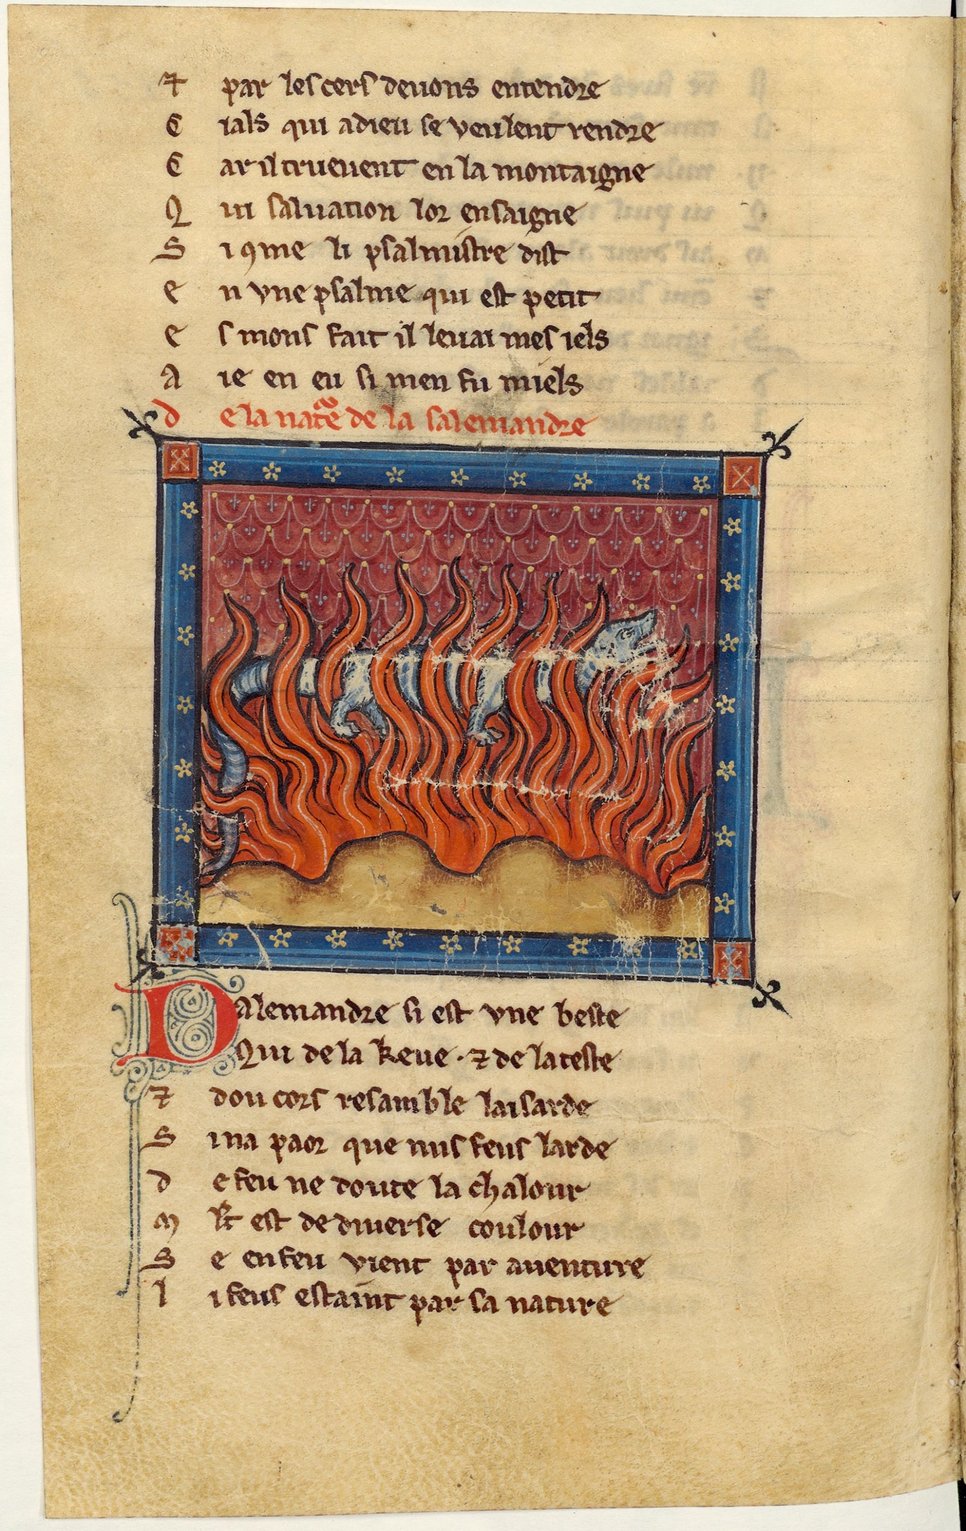 ⁊ par les cers deuons entendre
C ials qui a dieu se veulent rendre
C ar il truevent en la montaigne
Q ui saluation lor ensaigne
S i ꝯme li psalmistre dist
e n vne psalme qui est petit
e s mons fait il leuai mes iels
A ie en eu si men fu miels
d e la natre de la salemandre
Salemandre si est vne beste
Qui de la keue · ⁊ de la teste
⁊ dou cors resamble laisarde
S i na paor que nus feus larde
d e feu ne doute la chalour
M lt est de diuerse coulour
S e en feu vient par auenture
l i feus estaint par sa nature